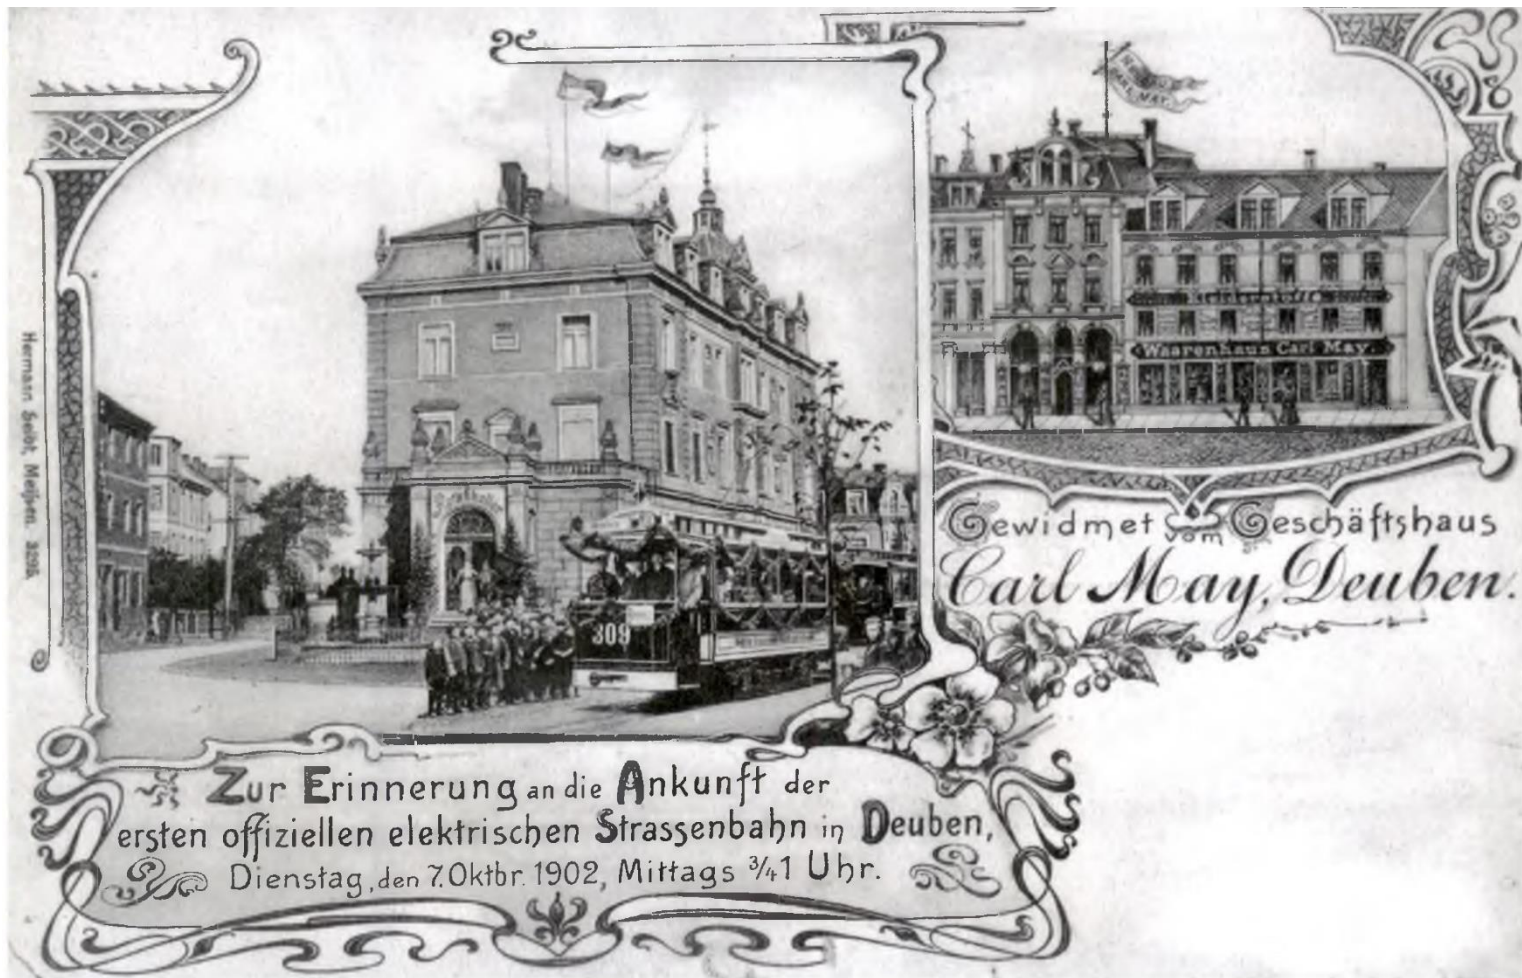 Hermann Seibt, Meißen. 3295.
CARL MAY.
Kleiderstoffe
Waarenhaus Carl May.
309
Gewidmet vom Geschäftshaus
Carl May, Deuben.
Zur Erinnerung an die Ankunft der
ersten offiziellen elektrischen Strassenbahn in Deuben,
Dienstag, den 7. Oktbr. 1902, Mittags ¾1 Uhr.